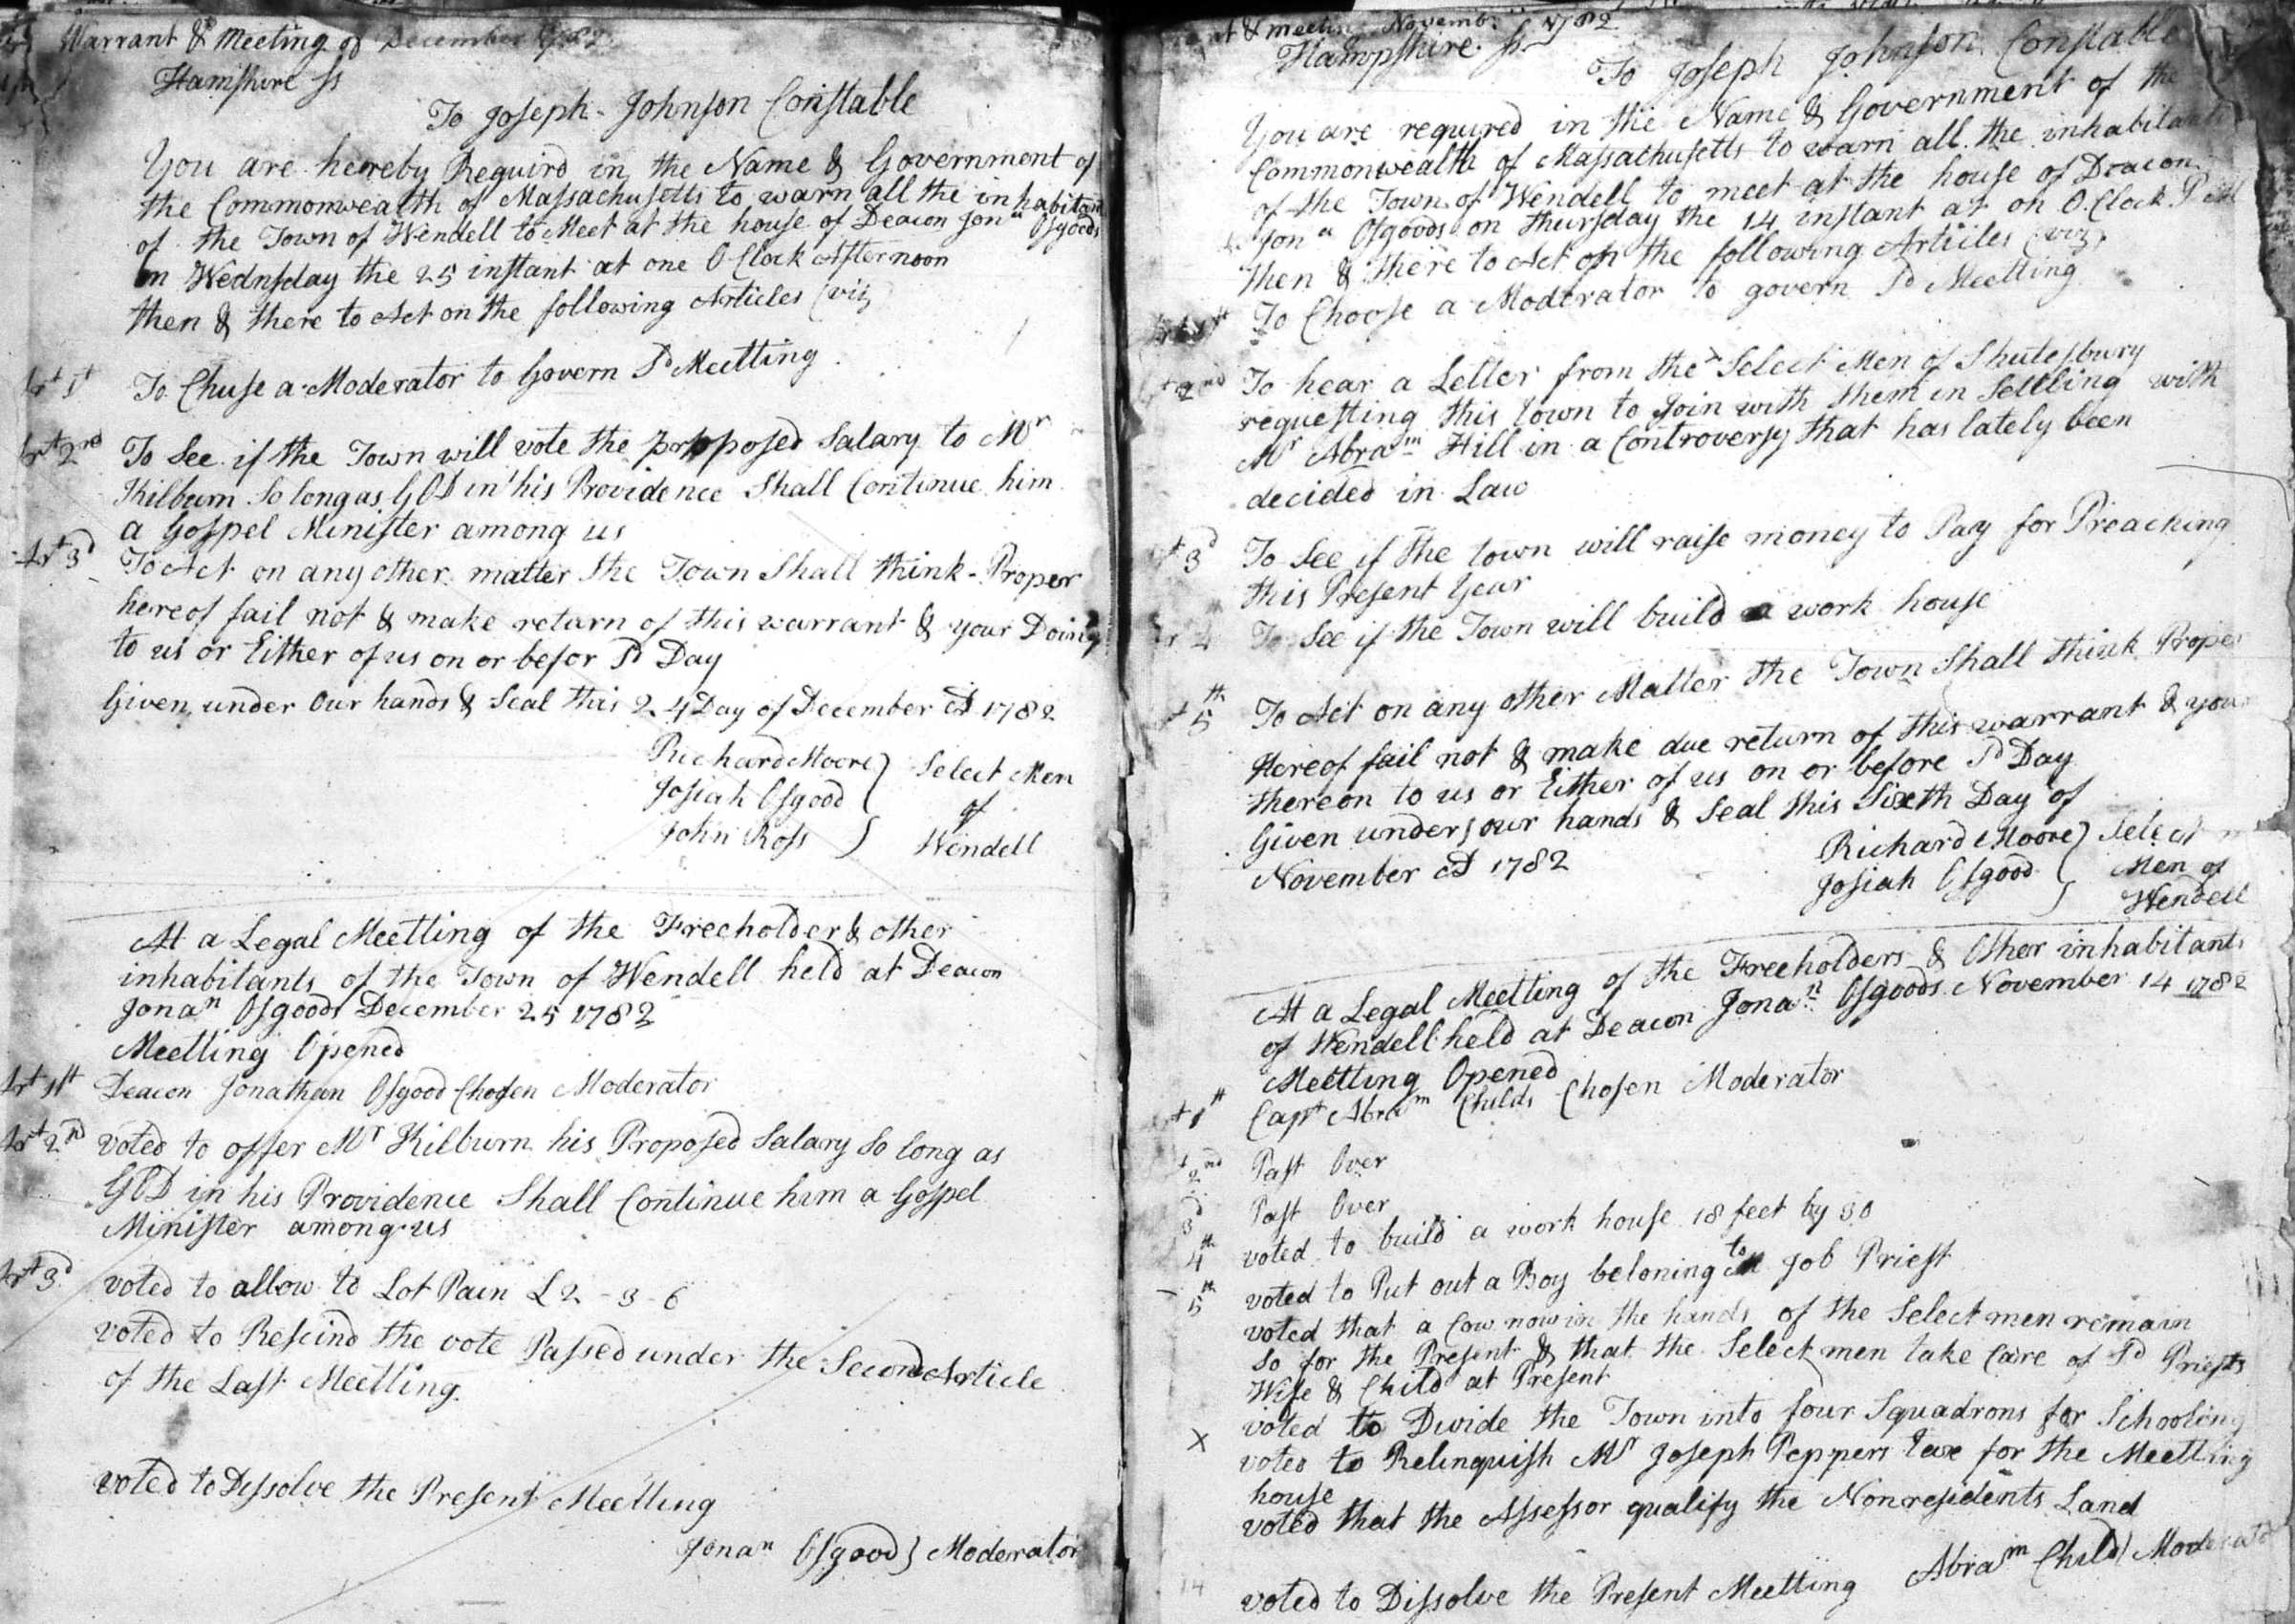 Warrant & Meeting of December 1782
Hamshire ss
To Joseph Johnson Constable
You are hereby Requird in the Name & Government of
the Commonwealth of Massachusetts to warn all the inhabitans
of the Town of Wendell to Meet at the house of Deacon Jonan Osgoods
on Wednsday the 25 instant at one O Clock Afternoon
then & there to Act on the following Articles (viz)
Art 1st To Chuse a Moderator to Govern Sd Meetting
Art 2nd To See if the Town will vote the proposed Salary to Mr
Kilburn So long as GOD in his Providence Shall Continue him
a Gospel Minister among us
Art 3d To Act on any other matter the Town Shall think Proper
hereof fail not & make return of this warrant & your Doing
to us or Either of us on or befor Sd Day
Given under Our hands & Seal this 24 Day of December AD 1782
Richard Moore } Select Men
Josiah Osgood } of
John Ross } Wendell
At a Legal Meetting of the Freeholder & other
inhabitants of the Town of Wendell held at Deacon
Jonan Osgoods December 25 1782
Meetting Opened
Art 1st Deacon Jonathan Osgood Chosen Moderator
Art 2nd voted to offer Mr Kilburn his Proposed Salary So long as
GOD in his Providence Shall Continue him a Gospel
Minister among us
Art 3d voted to allow to Lot Pain L 2 - 3 - 6
voted to Rescind the vote Passed under the Second Article
of the Last Meetting
voted to Dissolve the Present Meetting
Jonan Osgood } Moderator
& meetin Novemb. 1782
Hampshire ss
To Joseph Johnson Constable
You are required in the Name & Government of the
Commonwealth of Massachusetts to warn all the inhabitants
of the Town of Wendell to meet at the house of Deacon
Jonan Osgoods on Thursday the 14 instant at on O.Clock P M
then & there to Act on the following Articles (viz)
Art 1st To Choose a Moderator to govern Sd Meetting
Art 2nd To hear a Letter from the Select Men of Shutesbury
requesting this town to Join with them in Settling with
Mr Abram Hill in a Controversy that has lately been
decided in Law
Art 3d To See if the town will raise money to Pay for Preaching
this Present Year
Art 4th To See if the Town will build a work house
Art 5th To Act on any other Matter the Town Shall think Proper
Hereof fail not & make due return of this warrant & your
thereon to us or Either of us on or before Sd Day
Given under our hands & Seal this Sixth Day of
November AD 1782
Richard Moore } Select
Josiah Osgood } Men of
Wendell
At a Legal Meetting of the Freeholders & Other inhabitants
of Wendell held at Deacon Jonan Osgoods November 14 1782
Meetting Opened
Art 1st Capt Abram Childs Chosen Moderator
2nd Past Over
3d Past Over
4th voted to build a work house 18 feet by 30
5th voted to Put out a Boy beloning to Job Priest
voted that a Cow now in the hands of the Select men remain
So for the Present & that the Select men take Care of Sd Priests
Wife & Child at Present
voted to Divide the Town into four Squadrons for Schooling
X voted to Relinquish Mr Joseph Peppers tax for the Meetting
house
voted that the Assessor qualify the Nonresidents Land
voted to Dissolve the Present Meetting Abram Child } Moderator